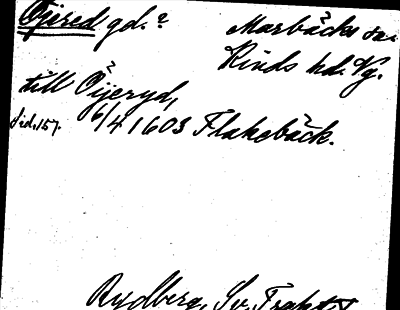 Öjered gd.? Marbäcks sn.
Kinds hd. Vg.
till Öijeryd,
Sid. 157. 6/4 1603 Flakebäck.
Rydberg, Sv. Trakt.